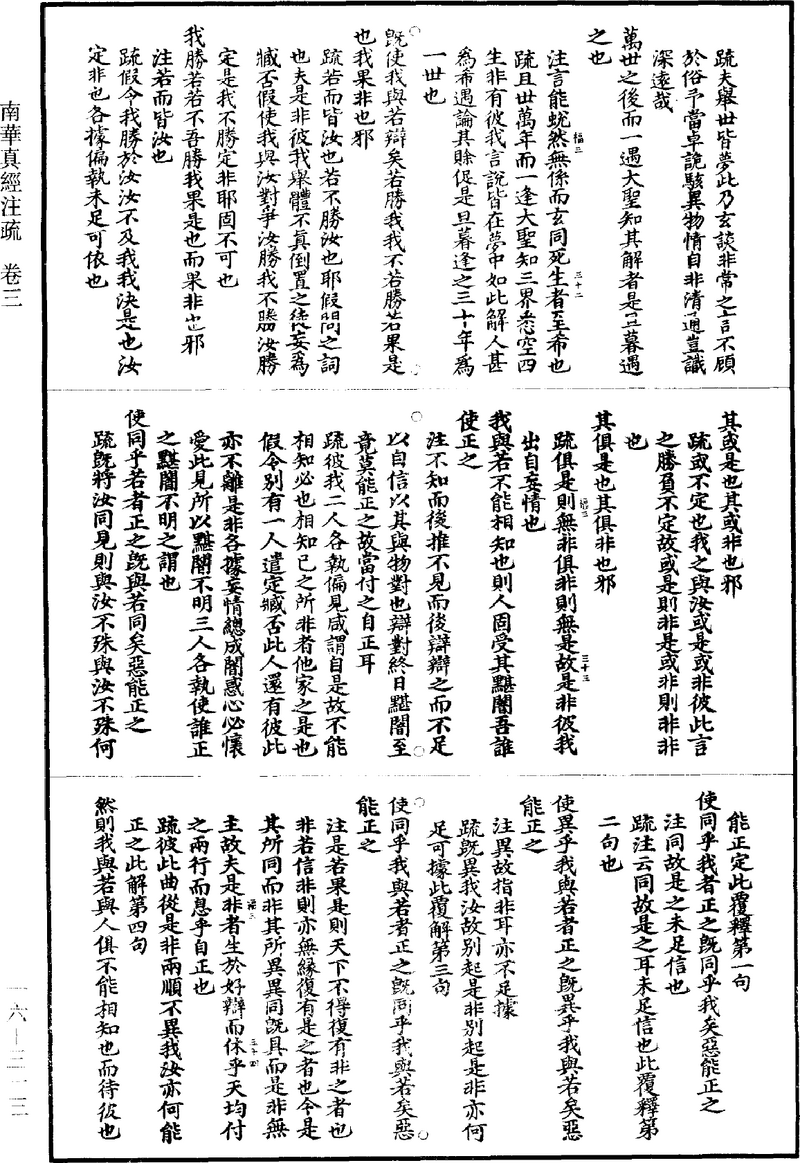 疏夫舉世皆夢此乃玄談非常之言不顧
於俗予當卓詭駭異物情自非清通豈識
深遠哉
萬世之後而一遇大聖知其解者是旦暮遇
之也
注言能蛻然無係而玄同死生者至希也
疏且世萬年而一逢大聖知三界悉空四
生非有彼我言說皆在夢中如此解人甚
為希遇論其賒促是旦暮逢之三十年為
一世也
既使我與若辯矣若勝我我不若勝若果是
也我果非也邪
疏若而皆汝也若不勝汝也耶假問之詞
也夫是非彼我舉體不真倒置之徒妄為
臧否假使我與汝對爭汝勝我不勝汝勝
定是我不勝定非耶固不可也
我勝若若不吾勝我果是也而果非也邪
注若而皆汝也
疏假令我勝於汝汝不及我我決是也汝
定非也各據偏執未足可依也
南華真經注疏 卷三
其或是也其或非也邪
疏或不定也我之與汝或是或非彼此言
之勝負不定故或是則非是或非則非非
也
其俱是也其俱非也邪
疏俱是則無非俱非則無是故是非彼我
出自妄情也
我與若不能相知也則人固受其黮闇吾誰
使正之
注不知而後推不見而後辯辯之而不足
以自信以其與物對也辯對終日黮闇至
竟莫能正之故當付之自正耳
疏彼我二人各執偏見咸謂自是故不能
相知必也相知己之所非者他家之是也
假令別有一人遣定臧否此人還有彼此
亦不離是非各據妄情總成闇惑心必懷
愛此見所以黮闇不明三人各執使誰正
之黮闇不明之謂也
使同乎若者正之既與若同矣惡能正之
疏既將汝同見則與汝不殊與汝不殊何
能正定此覆釋第一句
使同乎我者正之既同乎我矣惡能正之
注同故是之未足信也
疏注云同故是之耳未足信也此覆釋第
二句也
使異乎我與若者正之既異乎我與若矣惡
能正之
注異故指非耳亦不足據
疏既異我汝故別起是非別起是非亦何
足可據此覆解第三句
使同乎我與若者正之既同乎我與若矣惡
能正之
注是若果是則天下不得復有非之者也
非若信非則亦無緣復有是之者也今是
其所同而非其所異異同既具而是非無
主故夫是非者生於好辯而休乎天均付
之兩行而息乎自正也
疏彼此曲從是非兩順不異我汝亦何能
正之此解第四句
然則我與若與人俱不能相知也而待彼也
一六—三一三